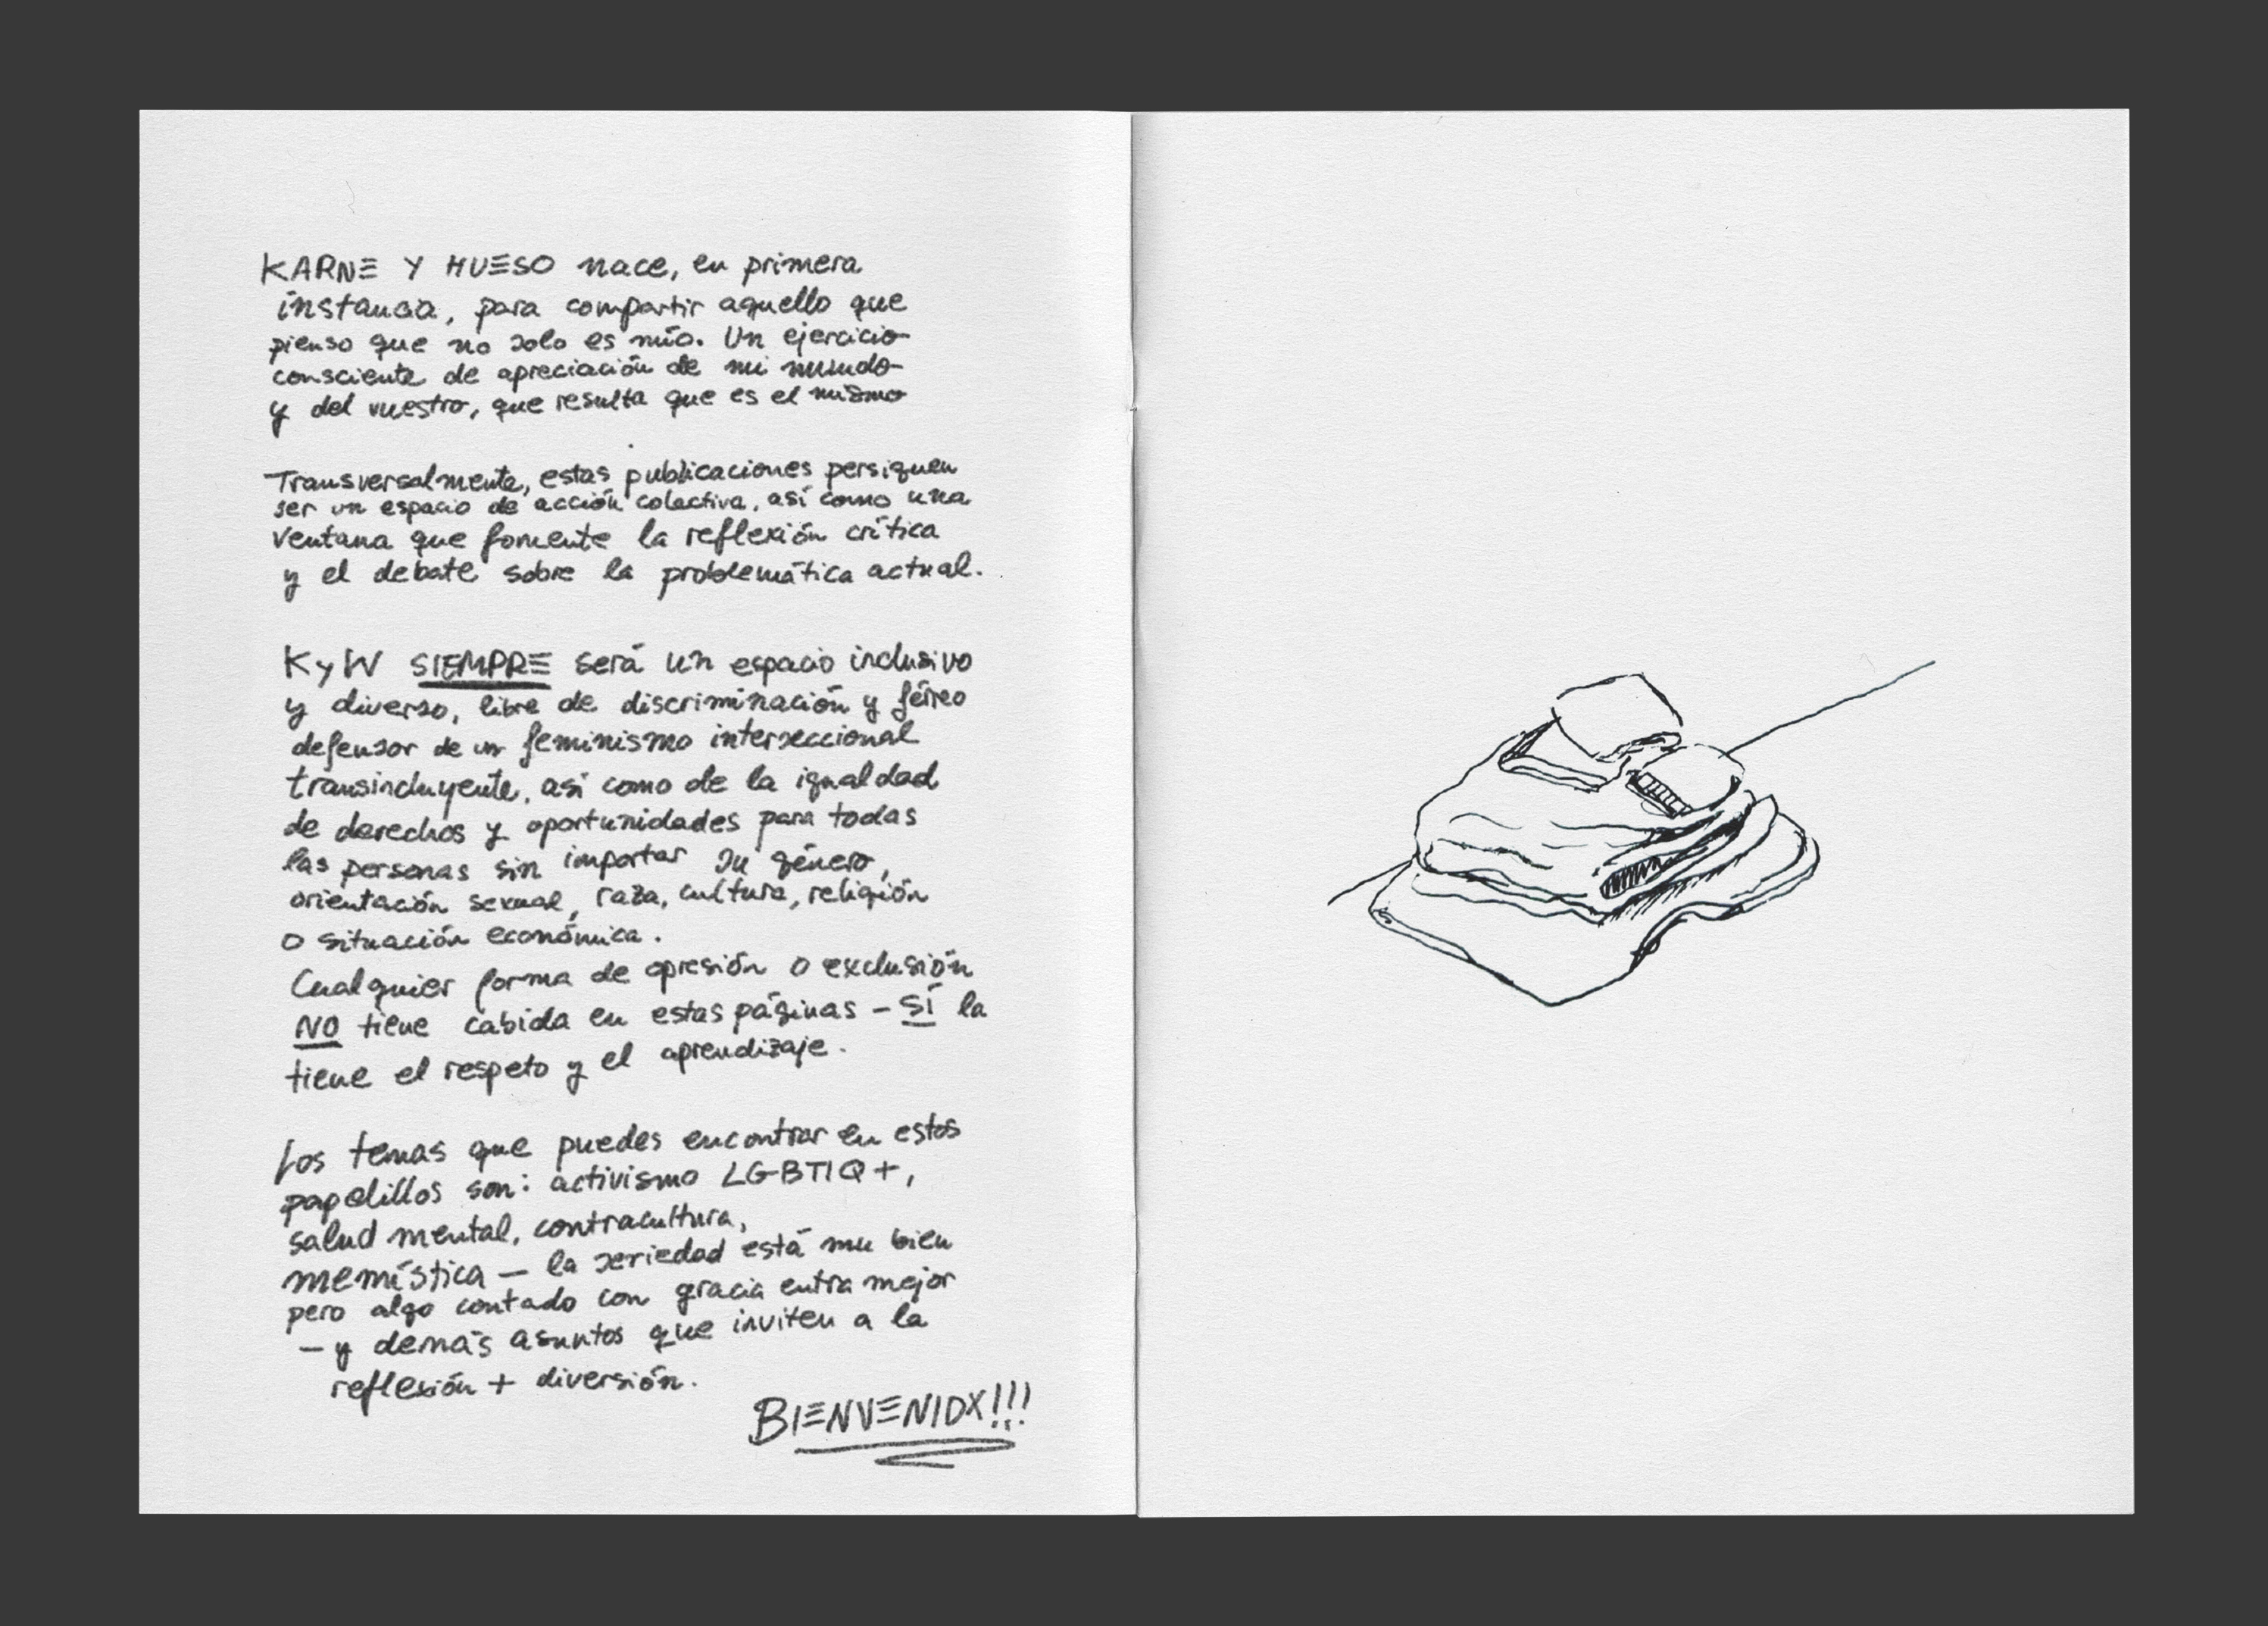 KARNE Y HUESO nace, en primera
instancia, para compartir aquello que
pienso que no solo es mío. Un ejercicio
consciente de apreciación de mi mundo
y del vuestro, que resulta que es el mismo
Transversalmente, estas publicaciones persiguen
ser un espacio de acción colectiva, así como una
ventana que fomente la reflexión crítica
y el debate sobre la problemática actual.
KyW SIEMPRE será un espacio inclusivo
y diverso, libre de discriminación y férreo
defensor de un feminismo interseccional
transincluyente, así como de la igualdad
de derechos y oportunidades para todas
las personas sin importar su género,
orientación sexual, raza, cultura, religión
o situación económica.
Cualquier forma de opresión o exclusión
NO tiene cabida en estas páginas - SÍ la
tiene el respeto y el aprendizaje.
Los temas que puedes encontrar en estos
papelillos son: activismo LGBTIQ+,
salud mental, contracultura,
memística - la seriedad está mu bien
pero algo contado con gracia entra mejor
- y demás asuntos que inviten a la
reflexión + diversión.
BIENVENIDX!!!